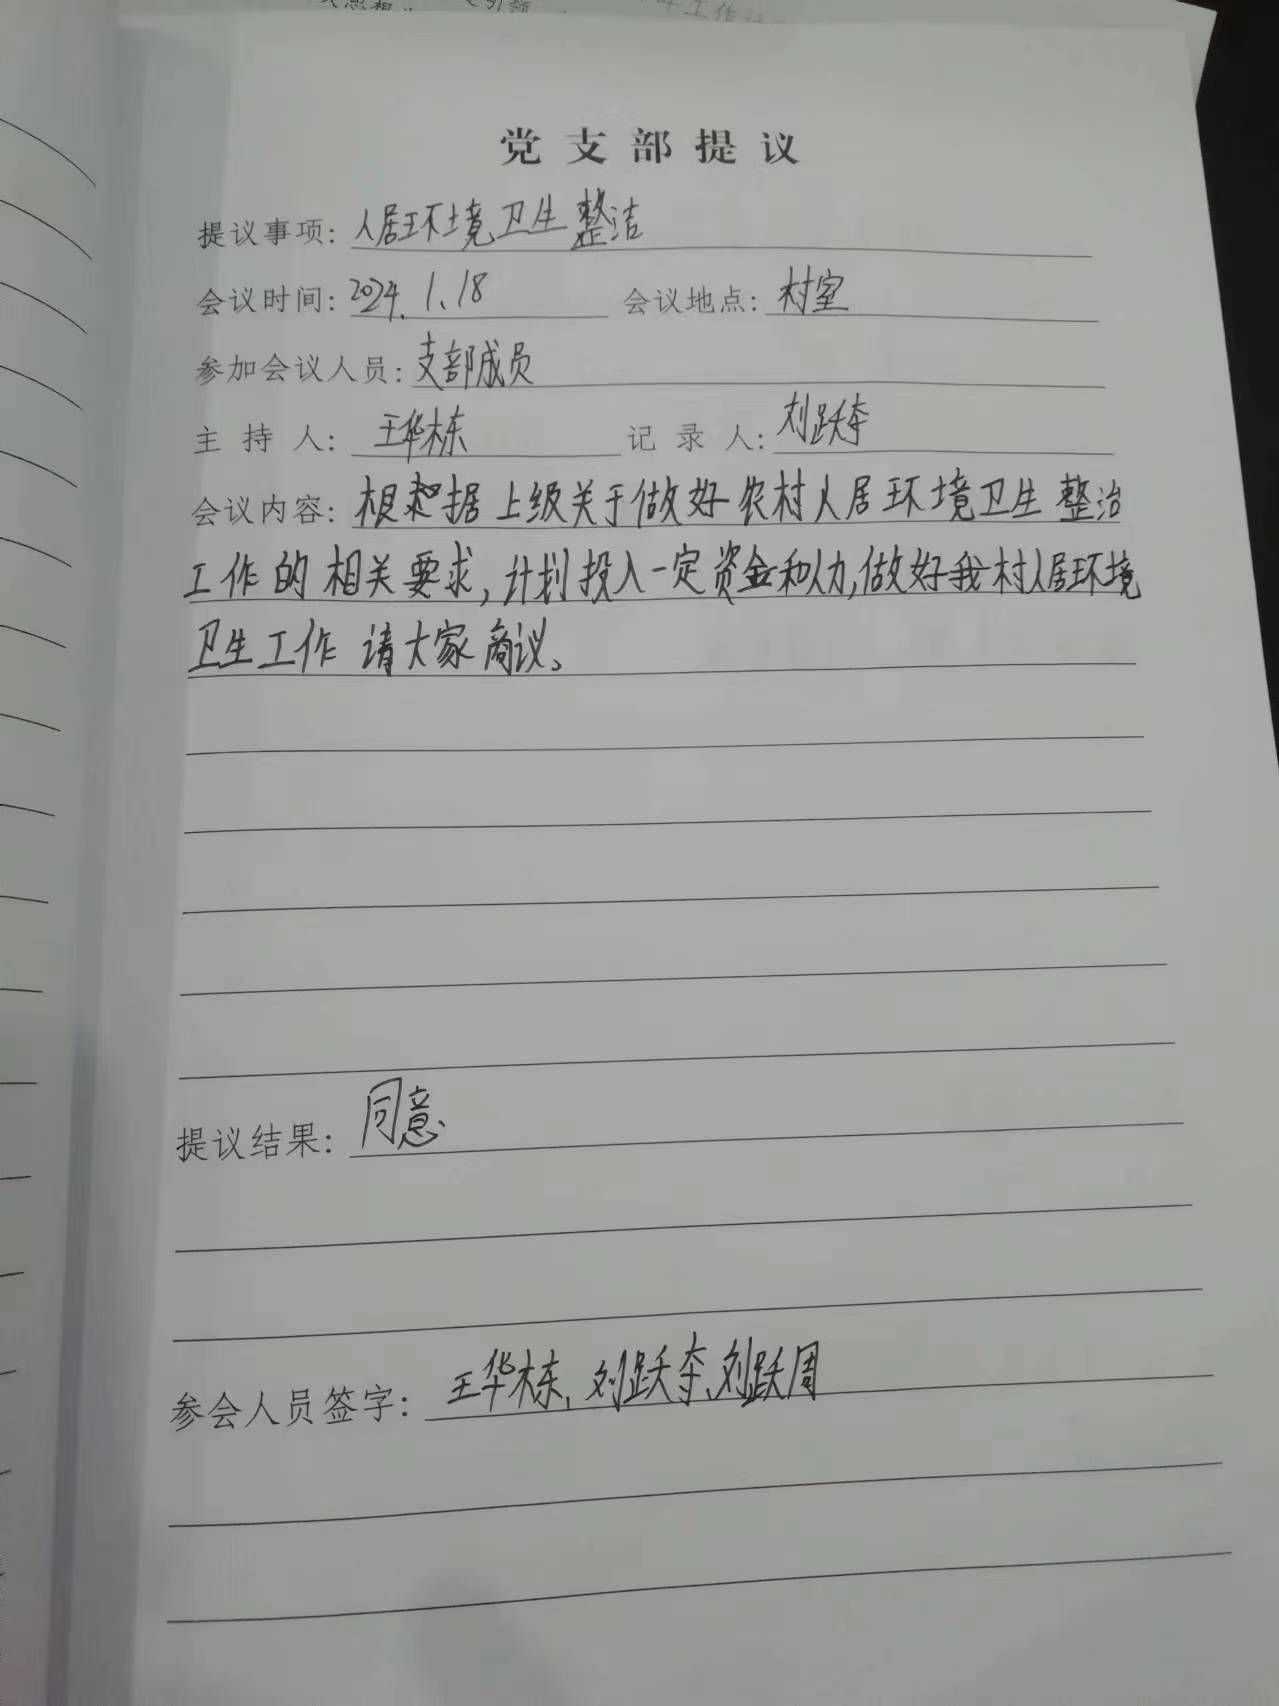 党支部提议
提议事项：人居环境卫生整洁
会议时间：2024.1.18 会议地点：村室
参加会议人员：支部成员
主持人：王华栋 记录人：刘跃夺
会议内容：根据上级关于做好农村人居环境卫生整治
工作的相关要求，计划投入一定资金和人力，做好我村人居环境
卫生工作 请大家商议。
提议结果：同意
参会人员签字：王华栋、刘跃夺、刘跃周